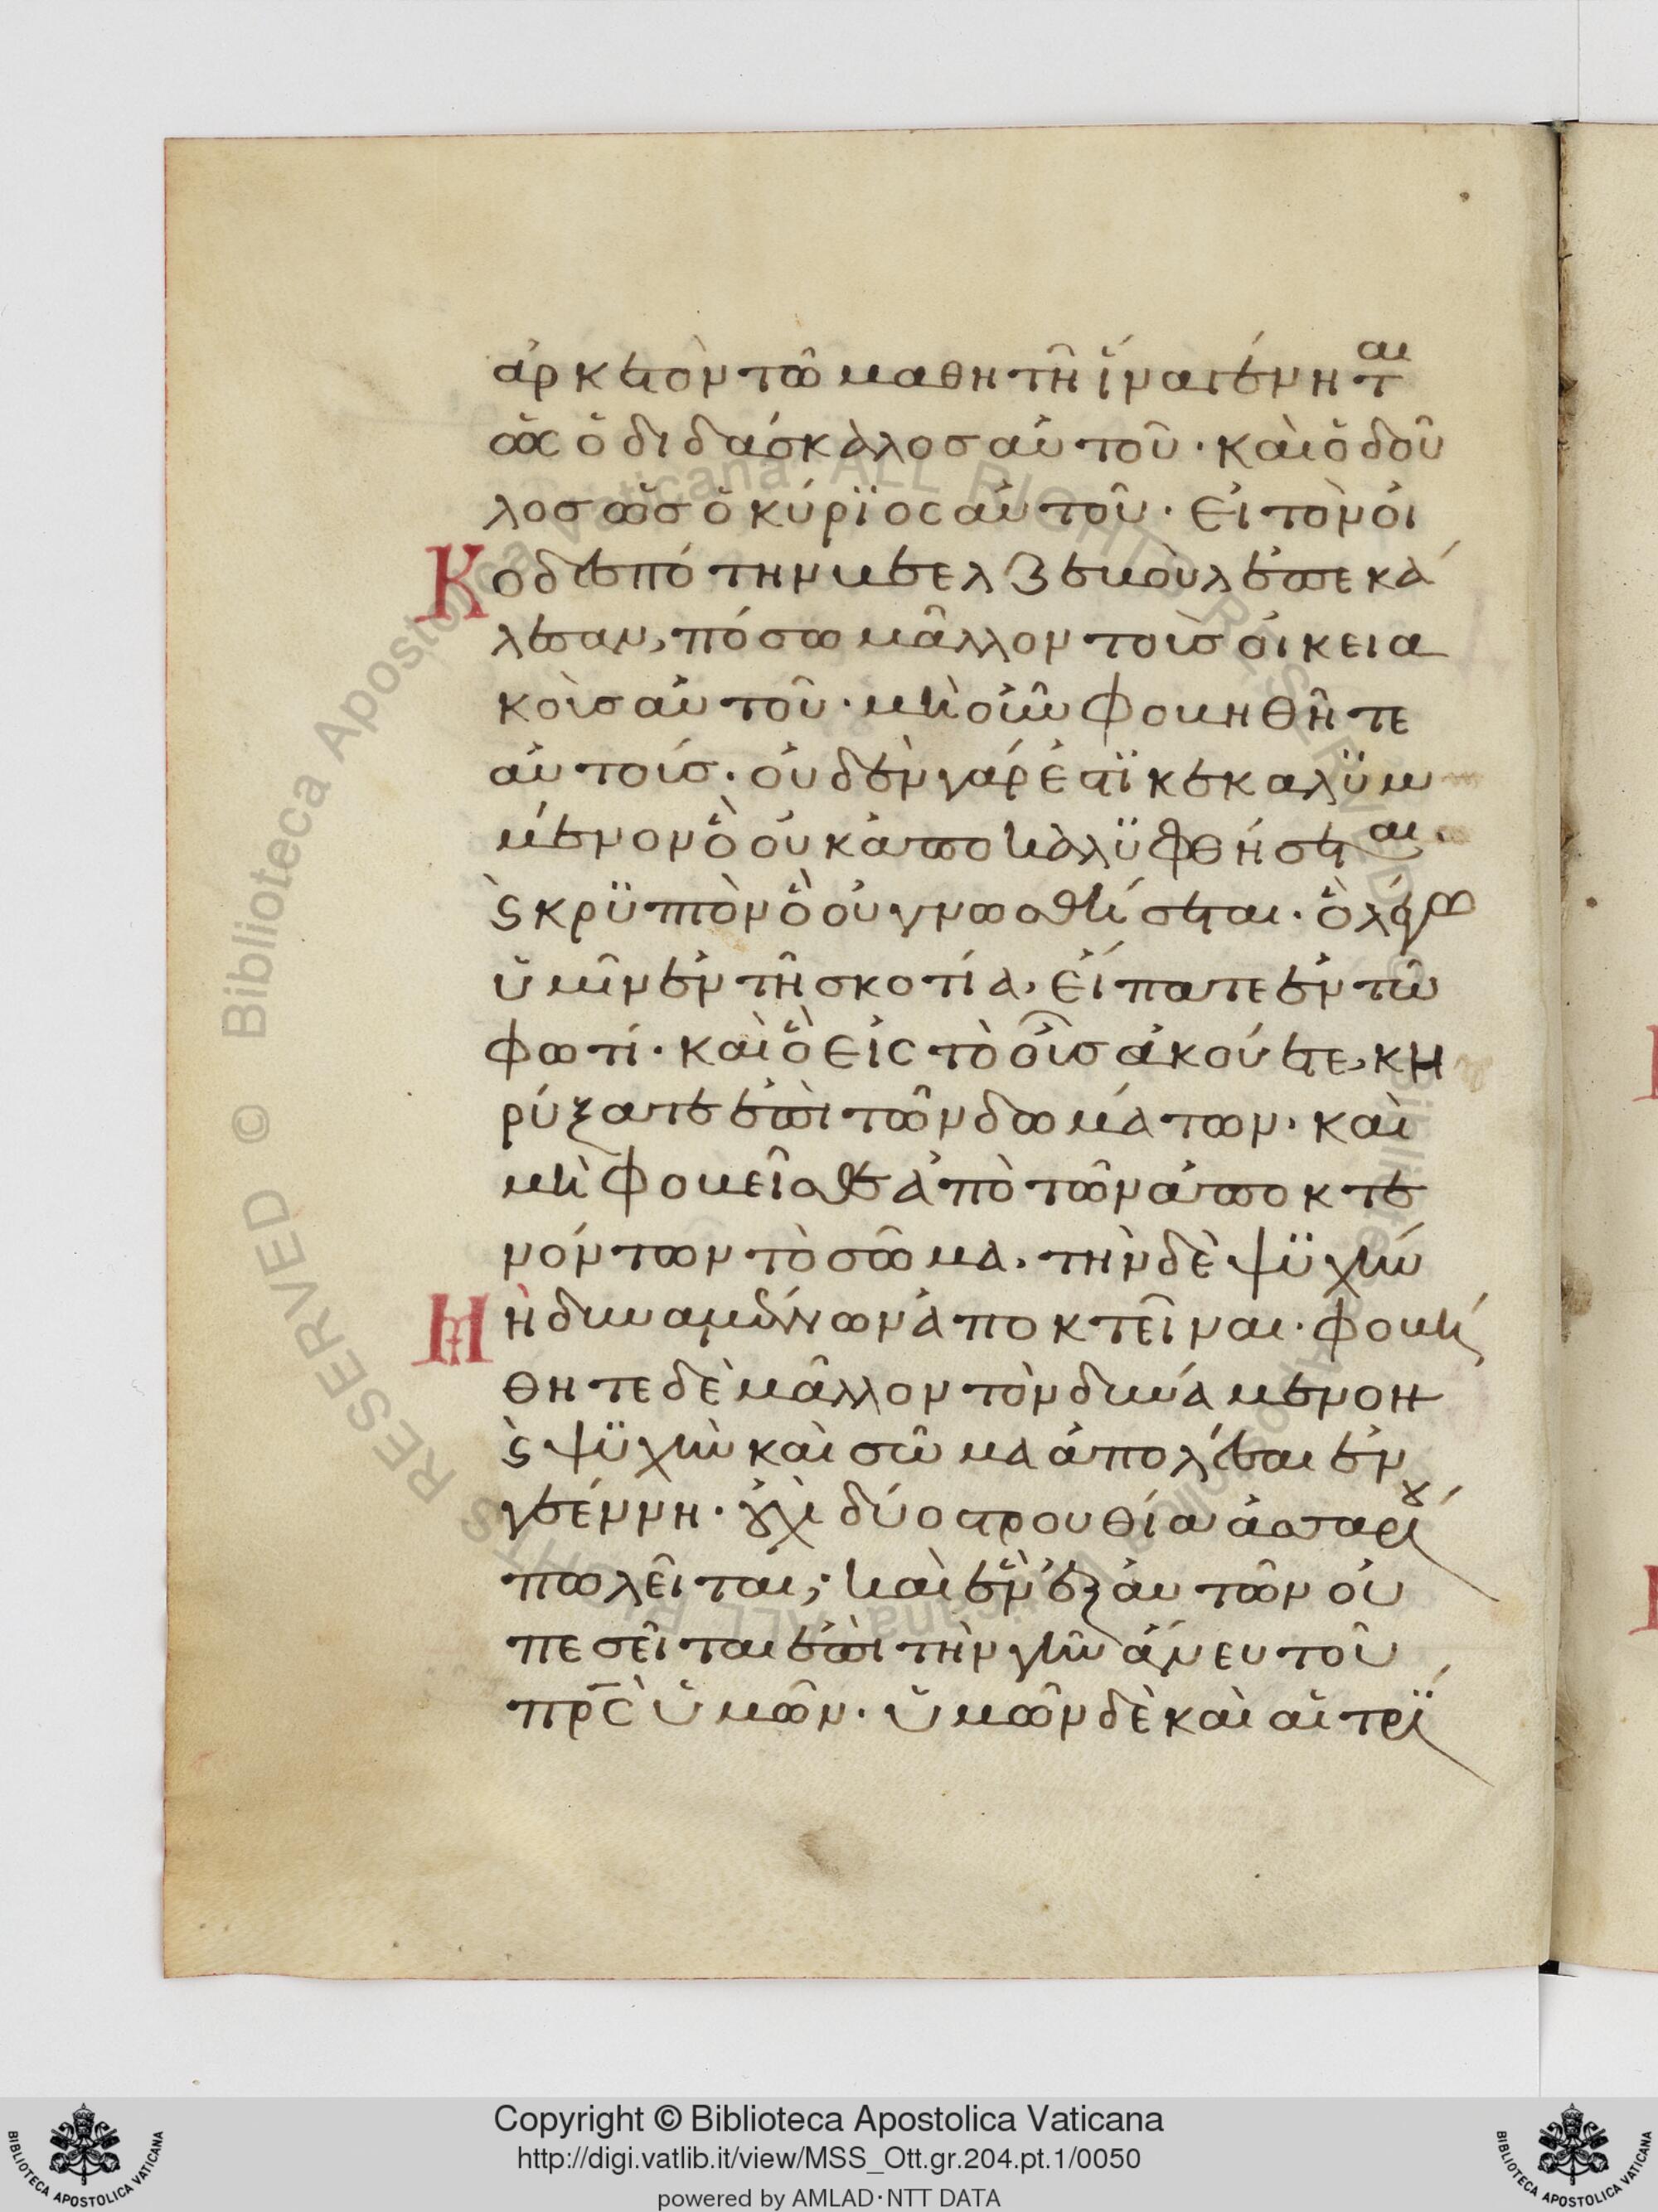 ἀρκετὸν τῶ μαθητῆ ἵνα γένηται
ὡς ὁ διδάσκαλος αὐτοῦ· καὶ ὁ δοῦ
λος ὡς ὁ κύρϊος αὐτοῦ· εἰ τὸν οἰ
Κοδεσπότην βεελζεβοὺλ ἐπεκά
λεσαν, πόσω μᾶλλον τοὺς οἰκεια
κοὺς αὐτοῦ· μὴ οὖν φοβηθῆτε
αὐτούς· οὐδὲν γάρ ἐστϊ κεκαλϋμ
μένον ὃ οὐκ ἀποκαλϋφθήσεται·
ϛ κρϋπτὸν ὃ οὐ γνωσθήσεται· ὃ λέγω
ὑμῖν ἐν τῆ σκοτία, εἴπατε ἐν τῶ
φωτί· καὶ ὃ εἰς τὸ οὖς ἀκούετε, κη
ρύξατε ἐπὶ τῶν δωμάτων· καὶ
μὴ φοβεῖσθε ἀπὸ τῶν ἀποκτε
νόντων τὸ σῶμα· τὴν δὲ ψϋχὴν
Μὴ δυναμένων ἀποκτεῖναι· φοβή
θητε δὲ μᾶλλον τὸν δυνάμενον
ϛ ψϋχὴν καὶ σῶμα ἀπολέσαι ἐν
γεέννη· οὐχὶ δύο στρουθία ἀσσαρίου
πωλεῖται; καὶ ἓν ἐξ αὐτῶν οὐ
πεσεῖται ἐπὶ τὴν γῆν ἄνευ τοῦ
πρ̅ς ὑμῶν· ὑμῶν δὲ καὶ αἱ τρί
Copyright © Biblioteca Apostolica Vaticana
http://digi.vatlib.it/view/MSS_Ott.gr.204.pt.1/0050
powered by AMLAD·NTT DATA
BIBLIOTECA APOSTOLICA VATICANA
BIBLIOTECA APOSTOLICA VATICANA